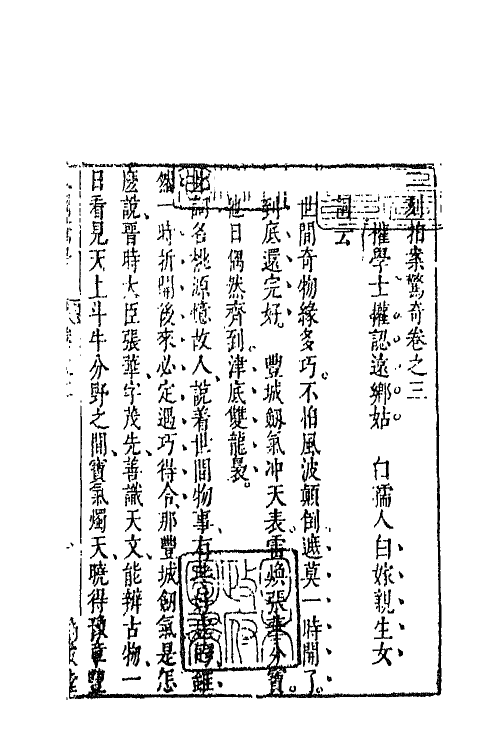 二刻拍案驚奇卷之三
權學士權認遠鄉姑　白孺人白嫁親生女
詞云
世間奇物緣多巧不怕風波顛倒遮莫一時開了
到底還完好。豐城劔氣冲天表雷煥張華分寶。
他日偶然齊到津底雙龍裊。
此詞名桃源憶故人說着世間物事有些好處的雖
然一時拆開後來必定遇巧得合那豐城劔氣是怎
麽說晋時大臣張華字茂先善識天文能辨古物一
日看見天上斗牛分野之間寶氣燭天曉得豫章豐